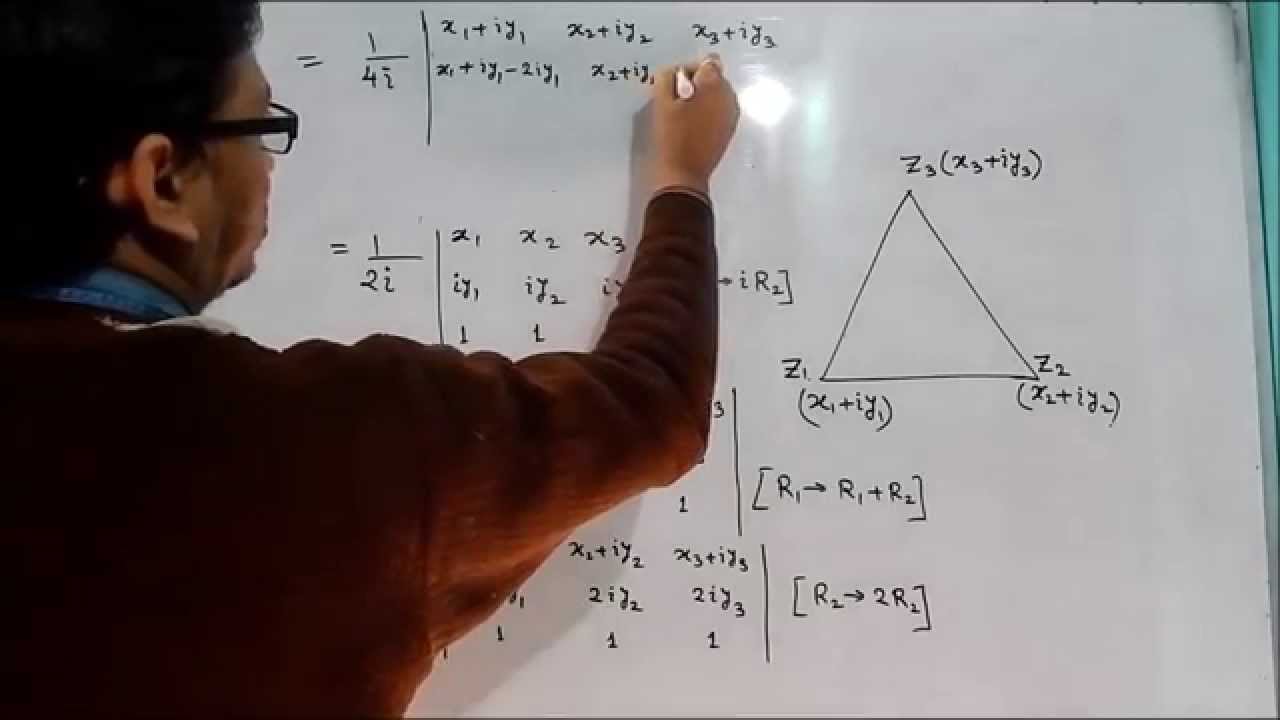 x₁+iy₁ x₂+iy₂ x₃+iy₃
= 1/4i | x₁+iy₁-2iy₁ x₂+iy
= 1/2i | x₁ x₂ x₃
iy₁ iy₂ → iR₂]
1 1
3
1 | [R₁→ R₁+R₂]
x₂+iy₂ x₃+iy₃
2iy₂ 2iy₃ | [R₂→ 2R₂]
1 1 1
Z₃(x₃+iy₃)
Z₁ Z₂
(x₁+iy₁) (x₂+iy₂)